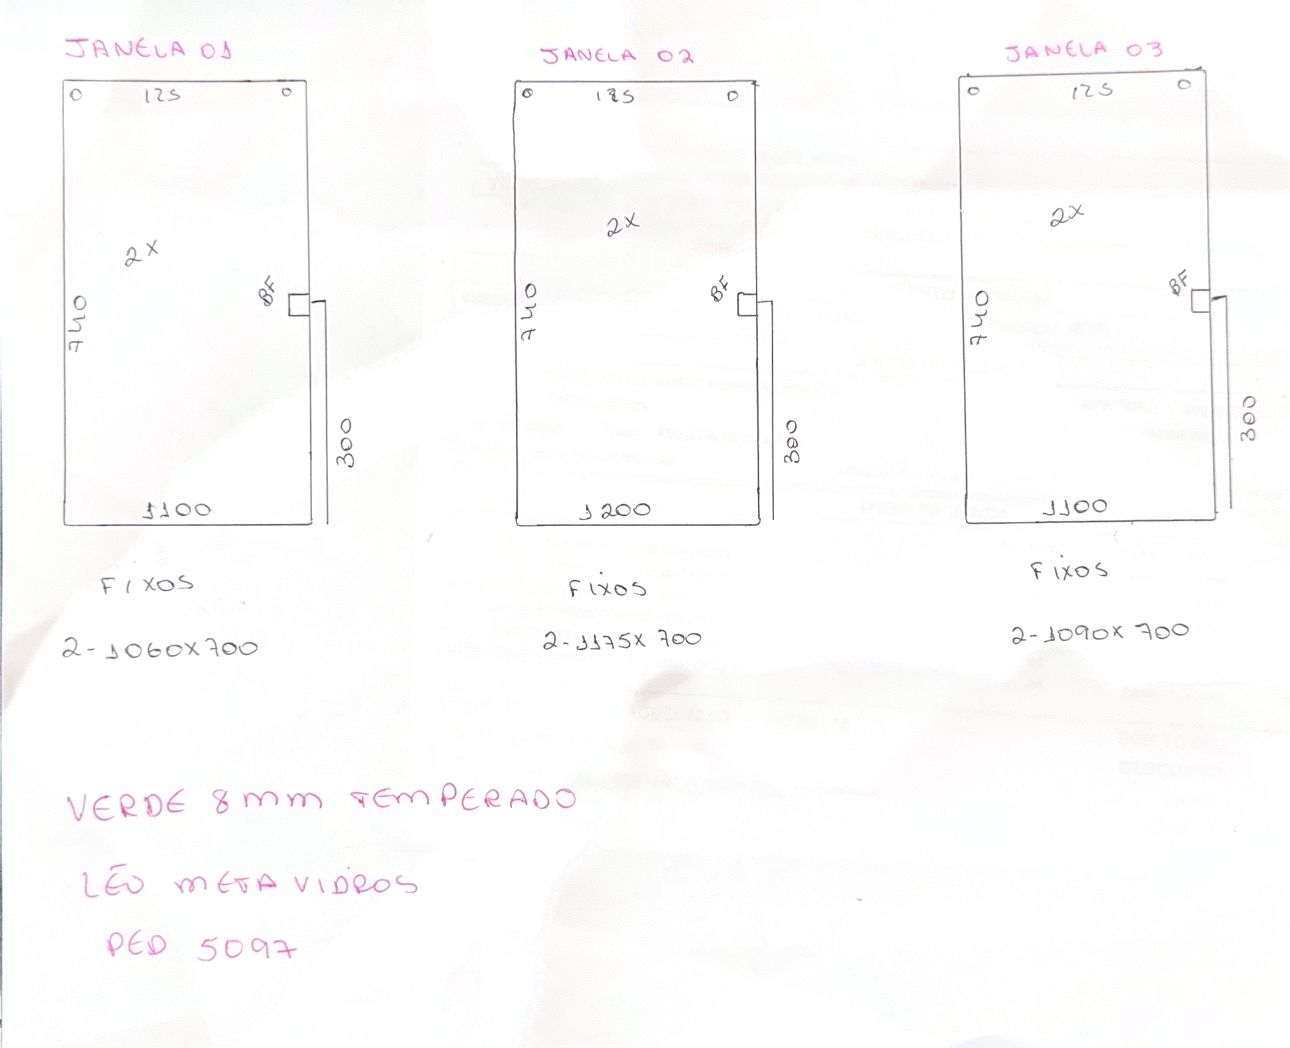 JANELA 01
125
2X
BF
740
300
1100
FIXOS
2-1060X700
JANELA 02
125
2X
BF
740
300
1200
FIXOS
2-1175X700
JANELA 03
125
2X
BF
740
300
1100
FIXOS
2-1090X700
VERDE 8mm TEMPERADO
LÉO META VIDROS
PED 5097